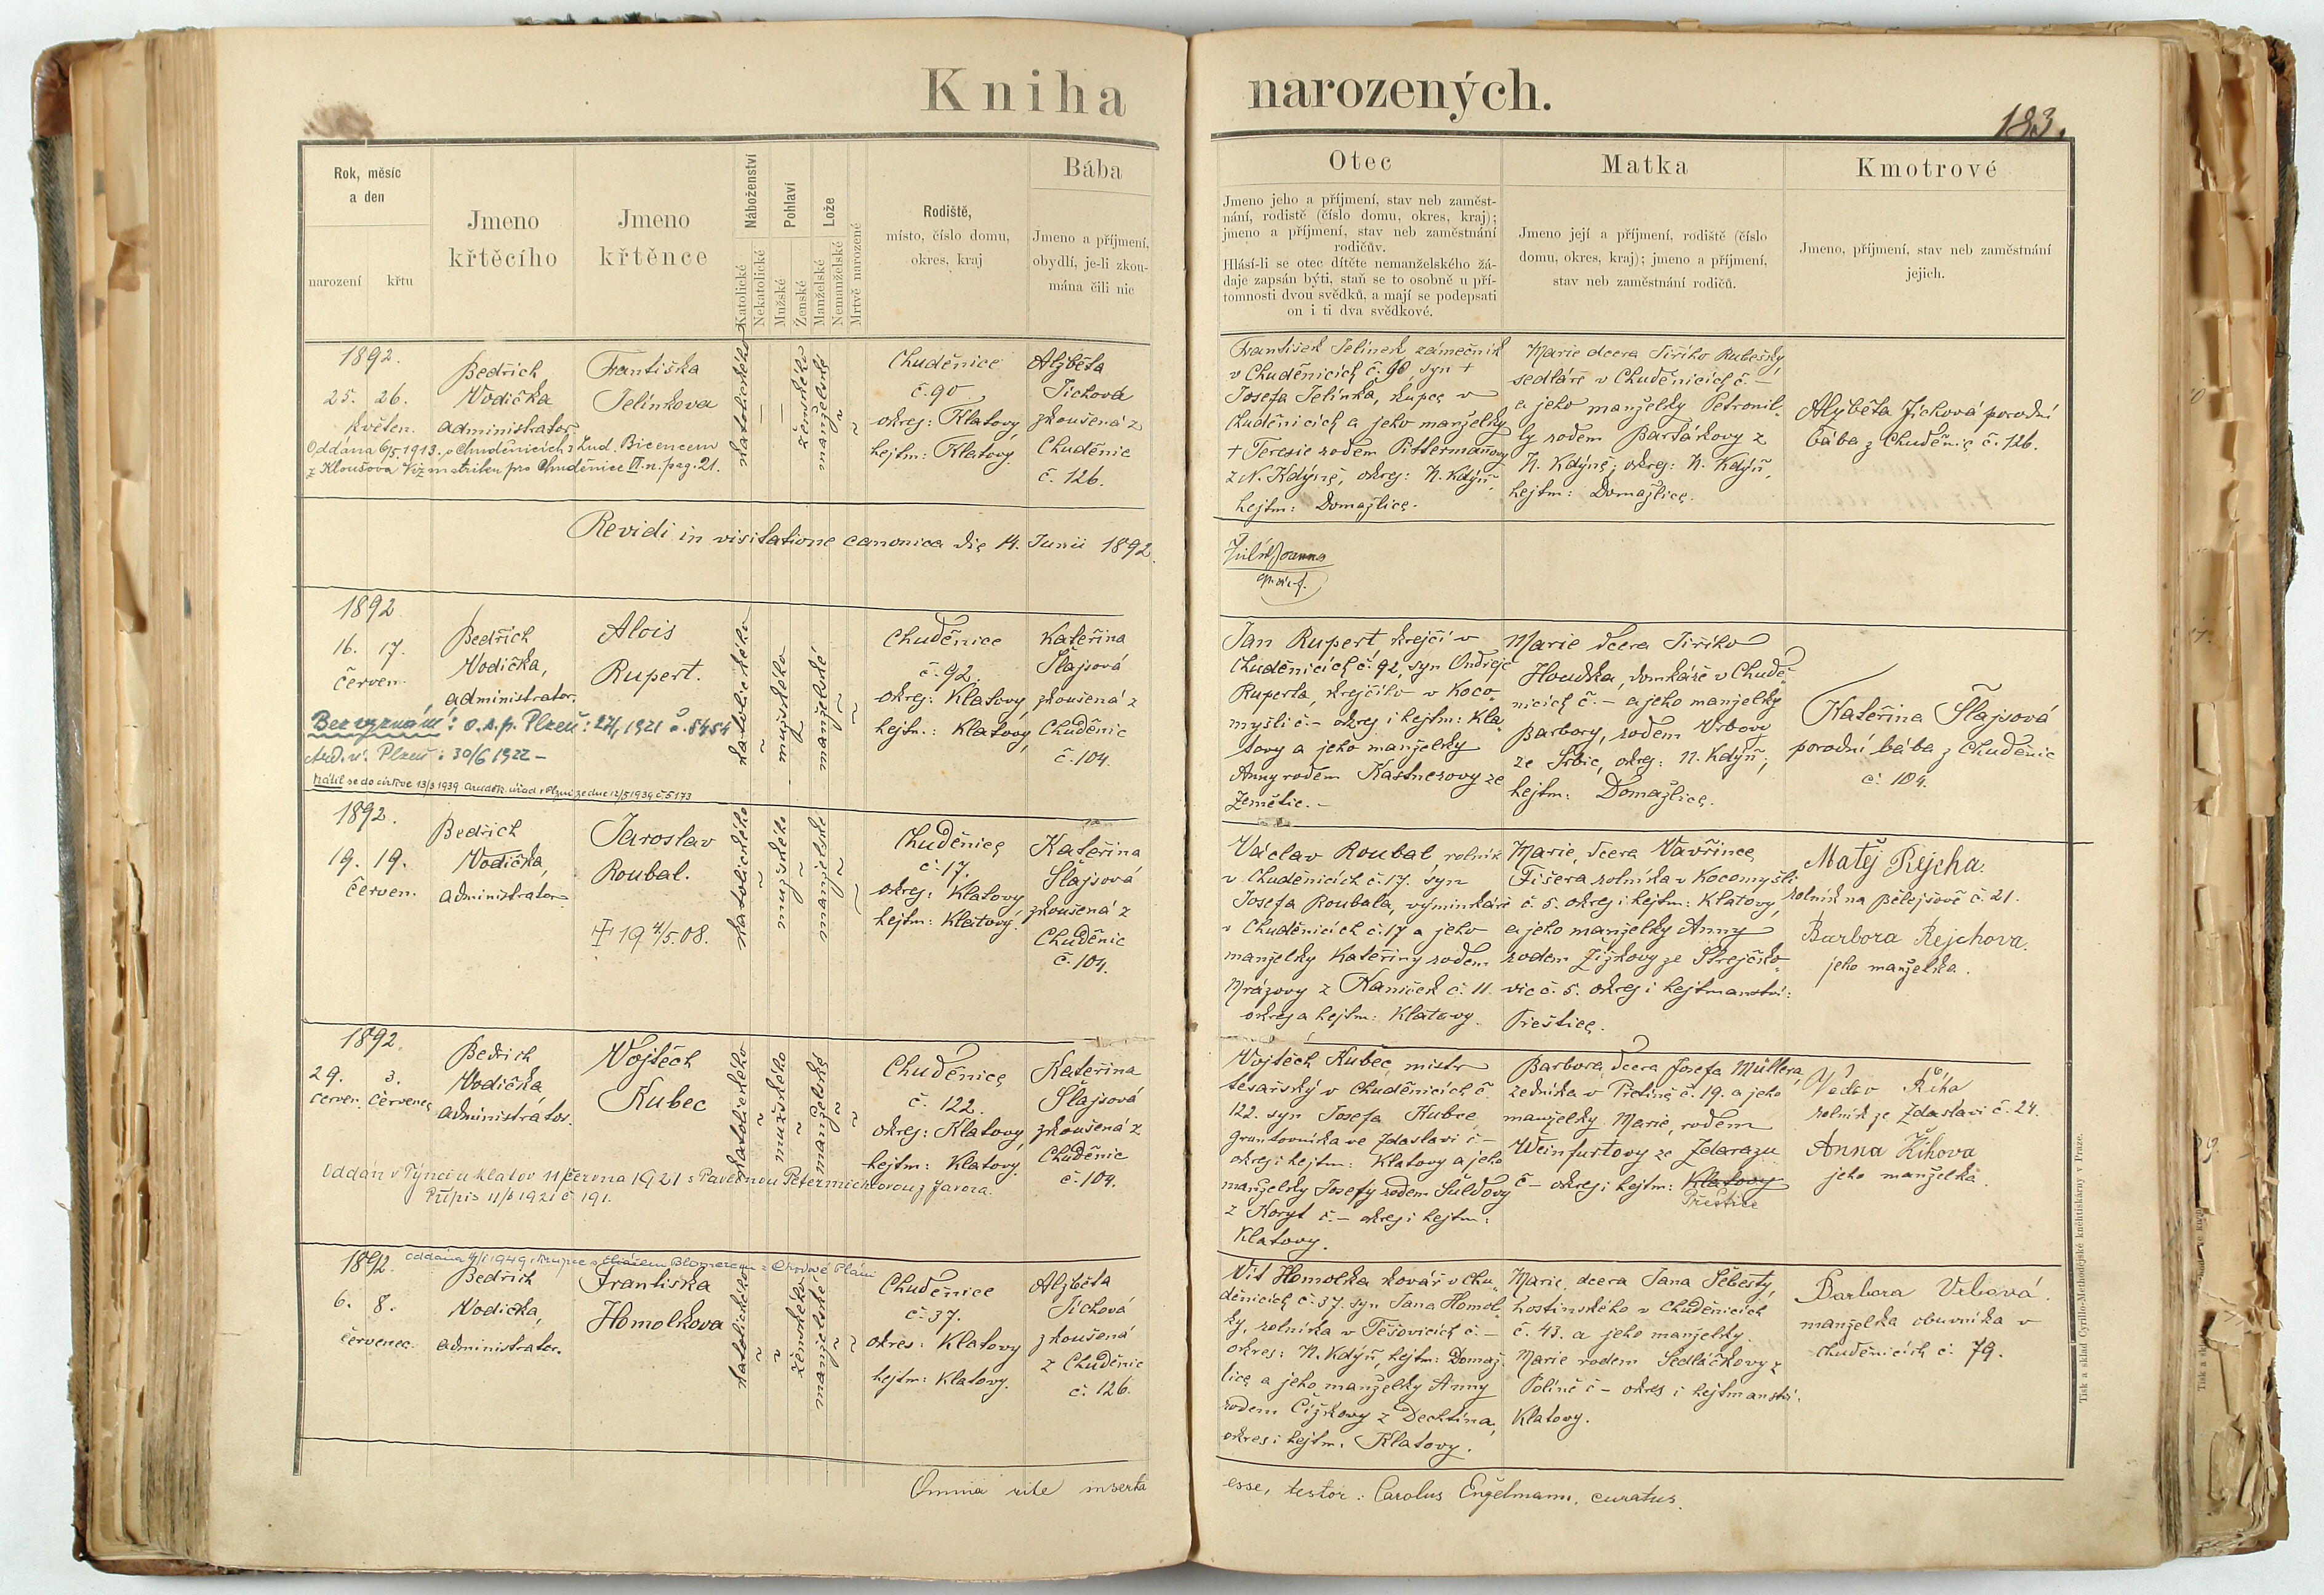 Kniha narozených.
183.
Rok, měsíc
a den
narození
křtu
Jmeno
křtěcího
Jmeno
křtěnce
Náboženství
Katolické
Nekatolické
Pohlaví
Mužské
Ženské
Lože
Manželské
Nemanželské
Mrtvě narozené
Rodiště,
místo, číslo domu,
okres, kraj
Bába
Jmeno a příjmení,
obydlí, je-li zkou-
mána čili nic
Otec
Jmeno jeho a příjmení, stav neb zaměst-
nání, rodistě (číslo domu, okres, kraj);
jmeno a příjmení, stav neb zaměstnání
rodičův.
Hlásí-li se otec dítěte nemanželského žá-
daje zapsán býti, staň se to osobně u pří-
tomnosti dvou svědků, a mají se podepsati
on i ti dva svědkové.
Matka
Jmeno její a příjmení, rodiště (číslo
domu, okres, kraj); jmeno a příjmení,
stav neb zaměstnání rodičů.
Kmotrové
Jmeno, příjmení, stav neb zaměstnání
jejich.
1892.
25. 26.
květen.
Bedřich
Vodička
administrator
Františka
Jelínkova
katolického
ženského
manželské
Chuděnice
č. 90
okres: Klatovy,
hejtm: Klatovy.
Alžběta
Jíchová
zkoušená z
Chuděnic
č. 126.
Oddána 6/5 1913. v Chuděnicích s Lud. Bicencem
z Kloušova viz matriku pro Chuděnice III. n. pag. 21.
František Jelínek zámečník
v Chuděnicích č. 90, syn +
Josefa Jelínka, kupce v
Chuděnicích a jeho manželky
+ Terezie rodem Pittermanovy
z N. Kdýně, okres: N. Kdýň,
hejtm: Domažlice.
Marie dcera Jiřího Rubešky,
sedláře v Chuděnicích č. –
a jeho manželky Petronil-
ly rodem Bartákovy z
N. Kdýně; okres: N. Kdýň,
hejtm: Domažlice.
Alžběta Jíchová porodní
bába z Chuděnic č. 126.
Revidi in visitatione canonica die 14. Junii 1892.
1892
16. 17.
červen.
Bedřich
Vodička,
administrator.
Alois
Rupert.
katolického
mužského
manželské
Chuděnice
č. 92.
okres: Klatovy,
hejtm.: Klatovy,
Kateřina
Šlajsová
zkoušená z
Chuděnic
č. 104.
Bez vyznání: o.s.p. Plzeň: 27/1 1921 č. 5454
Arud. ú. Plzeň: 30/6 1922 –
Vrátil se do církve 13/3 1939
Jan Rupert, krejčí v
Chuděnicích č. 92, syn Ondřeje
Ruperta, krejčího v Koco-
myšli č. – okres i hejtm: Kla-
tovy a jeho manželky
Anny rodem Kastnerovy ze
Zemětic. –
Marie dcera Jiřího
Houdka, domkáře v Chudě-
nicích č. – a jeho manželky
Barbory, rodem Vrbovy
ze Srbic, okres: N. Kdýň,
hejtm: Domažlice.
Kateřina Šlajsová
porodní bába z Chuděnic
č. 104.
1892.
19. 19.
červen.
Bedřich
Vodička,
administrator
Jaroslav
Roubal.
+ 19 4/5. 08.
katolického
mužského
manželské
Chuděnice
č. 17.
okres: Klatovy
hejtm: Klatovy.
Kateřina
Šlajsová
zkoušená z
Chuděnic
č. 104.
Václav Roubal, rolník
v Chuděnicích č. 17. syn
Josefa Roubala, výminkáře
v Chuděnicích č. 17 a jeho
manželky Kateřiny rodem
Mrázovy z Kaniček č. 11.
okres a hejtm: Klatovy.
Marie, dcera Vavřince
Fišera rolníka v Kocomyšli
č. 5. okres i hejtm: Klatovy,
a jeho manželky Anny
rodem Žižkovy ze Strejčko-
vic č. 5. okres i hejtmanství:
Přeštice.
Matěj Rejcha.
rolník na Bělejšově č. 21.
Barbora Rejchova.
jeho manželka.
1892.
29. 3.
červen. červenec
Bedřich
Vodička,
administrator.
Vojtěch
Kubec
katolického
mužského
manželské
Chuděnice
č. 122.
okres: Klatovy,
hejtm: Klatovy.
Kateřina
Šlajsová
zkoušená z
Chuděnic
č. 104.
Oddán v Týnci u Klatov 11 června 1921 s Pavlínou Petermichlovou z Javora.
Přípis 11/6 1921 č. 191.
Vojtěch Kubec, mistr
tesařský v Chuděnicích č.
122. syn Josefa Kubce
gruntovníka ve Zdaslavi č –
okres i hejtm: Klatovy a jeho
manželky Josefy rodem Šuldovy
z Koryt č. – okres i hejtm:
Klatovy.
Barbora, dcera Josefa Müllera,
zedníka v Pretíně č. 19. a jeho
manželky Marie, rodem
Weinfurtovy ze Zdarazu
č – okres i hejtm: Klatovy
Přeštice
Václav Říha
rolník ze Zdaslavi č. 24.
Anna Říhova
jeho manželka.
1892.
6. 8.
červenec.
Bedřich
Vodička,
administrator.
Františka
Homolkova
katolického
ženského
manželské
Chuděnice
č. 37.
okres: Klatovy
hejtm: Klatovy.
Alžběta
Jíchová
zkoušená
z Chuděnic
č. 126.
Vít Homolka kovář v Chu-
děnicích č. 37. syn Jana Homol-
ky, rolníka v Těšovicích č. –
okres: N. Kdýň, hejtm: Domaž-
lice a jeho manželky Anny
rodem Čížkovy z Dechtína,
okres i hejtm. Klatovy.
Marie, dcera Jana Šebesty,
hostinského v Chuděnicích
č. 43. a jeho manželky
Marie rodem Sedláčkovy z
Políně č – okres i hejtmanství.
Klatovy.
Barbora Vrbová.
manželka obuvníka v
Chuděnicích č. 79.
Omnia rite inserta
esse, testor: Carolus Engelmann, curatus.
Tisk a sklad Cyrillo-Methodějské knihtiskárny v Praze.